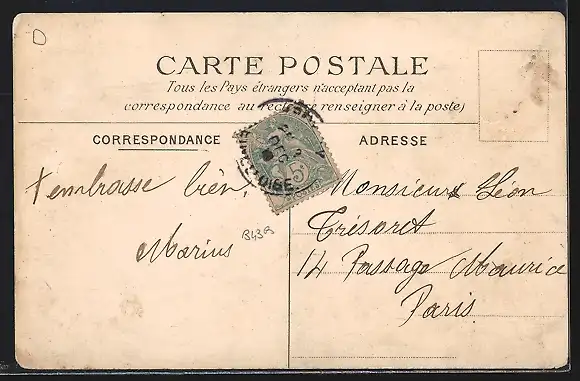 CARTE POSTALE
Tous les Pays étrangers n'acceptant pas la
correspondance au recto (se renseigner à la poste)
CORRESPONDANCE
ADRESSE
t'embrasse bien,
Marius
B439
Monsieur Léon
Trésoret
14 Passage Maurice
Paris
5
OISE